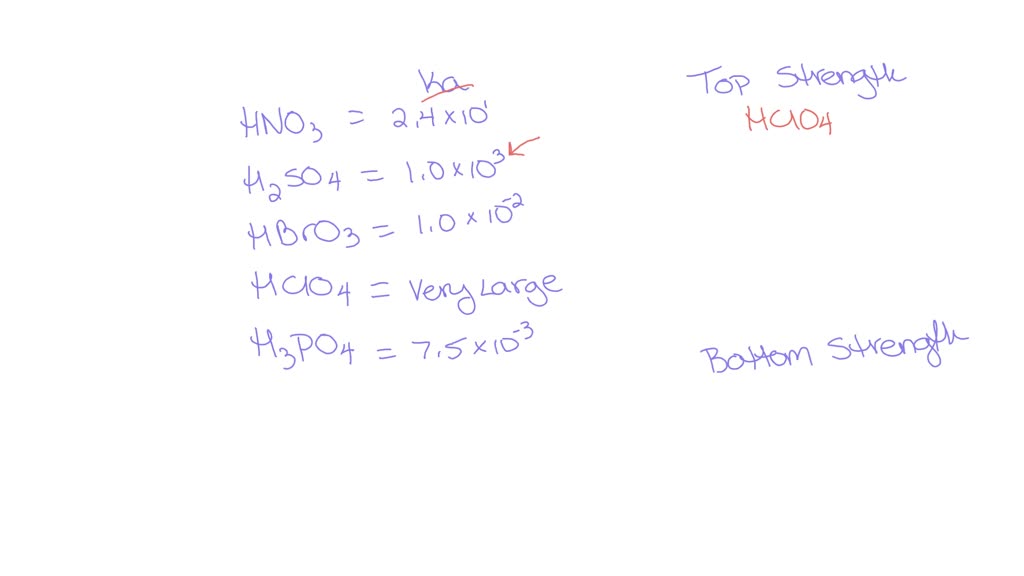 Ka
HNO₃ = 2.4×10¹
H₂SO₄ = 1.0×10³
HBrO₃ = 1.0×10⁻²
HClO₄ = Very Large
H₃PO₄ = 7.5×10⁻³
Top Strength
HClO₄
Bottom Strength